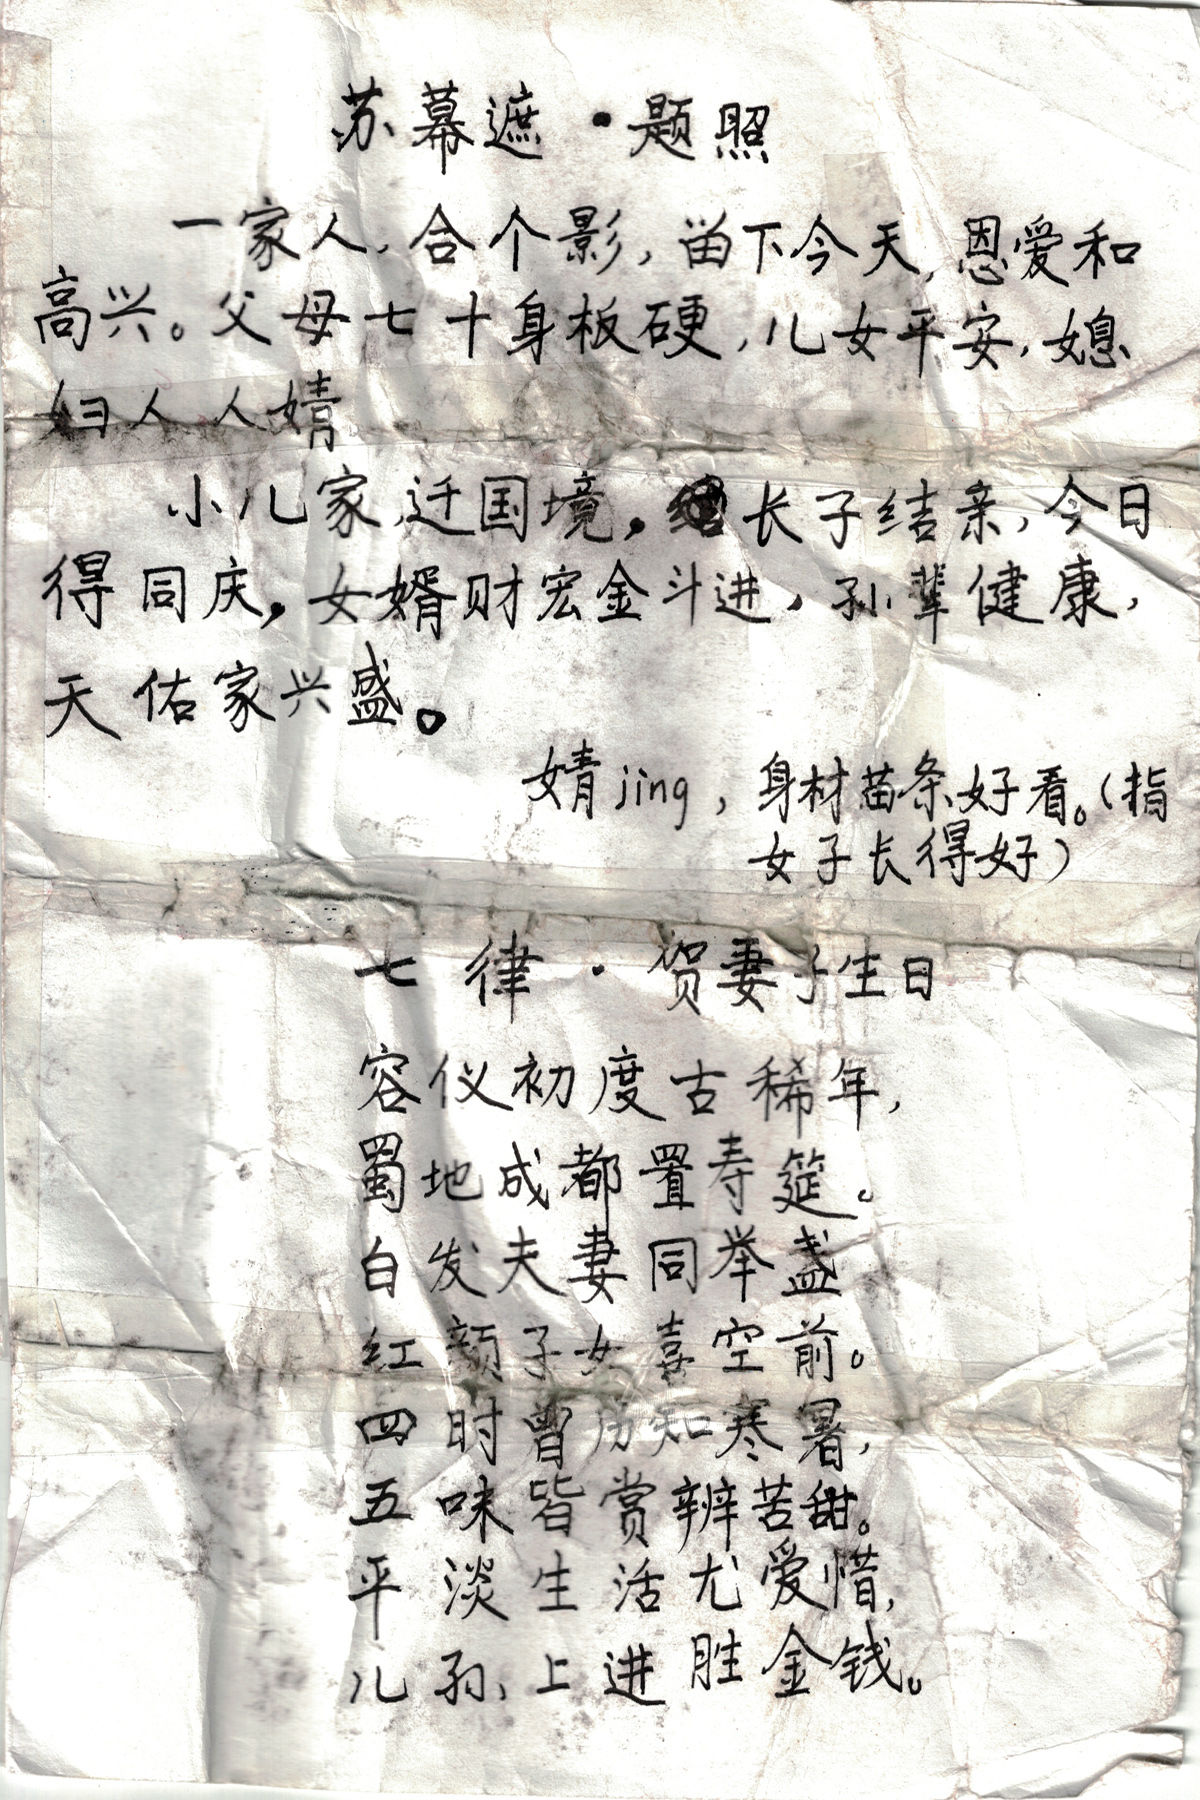 苏幕遮·题照
一家人,合个影,留下今天,恩爱和
高兴。父母七十身板硬,儿女平安,媳
妇人人婧
小儿家迁国境,长子结亲,今日
得同庆,女婿财宏金斗进,孙辈健康,
天佑家兴盛。
婧jing,身材苗条好看。(指
女子长得好)
七律·贺妻子生日
容仪初度古稀年,
蜀地成都置寿筵。
白发夫妻同举盏
红颜子女喜空前。
四时曾历知寒暑,
五味皆尝辨苦甜。
平淡生活尤爱惜,
儿孙上进胜金钱。